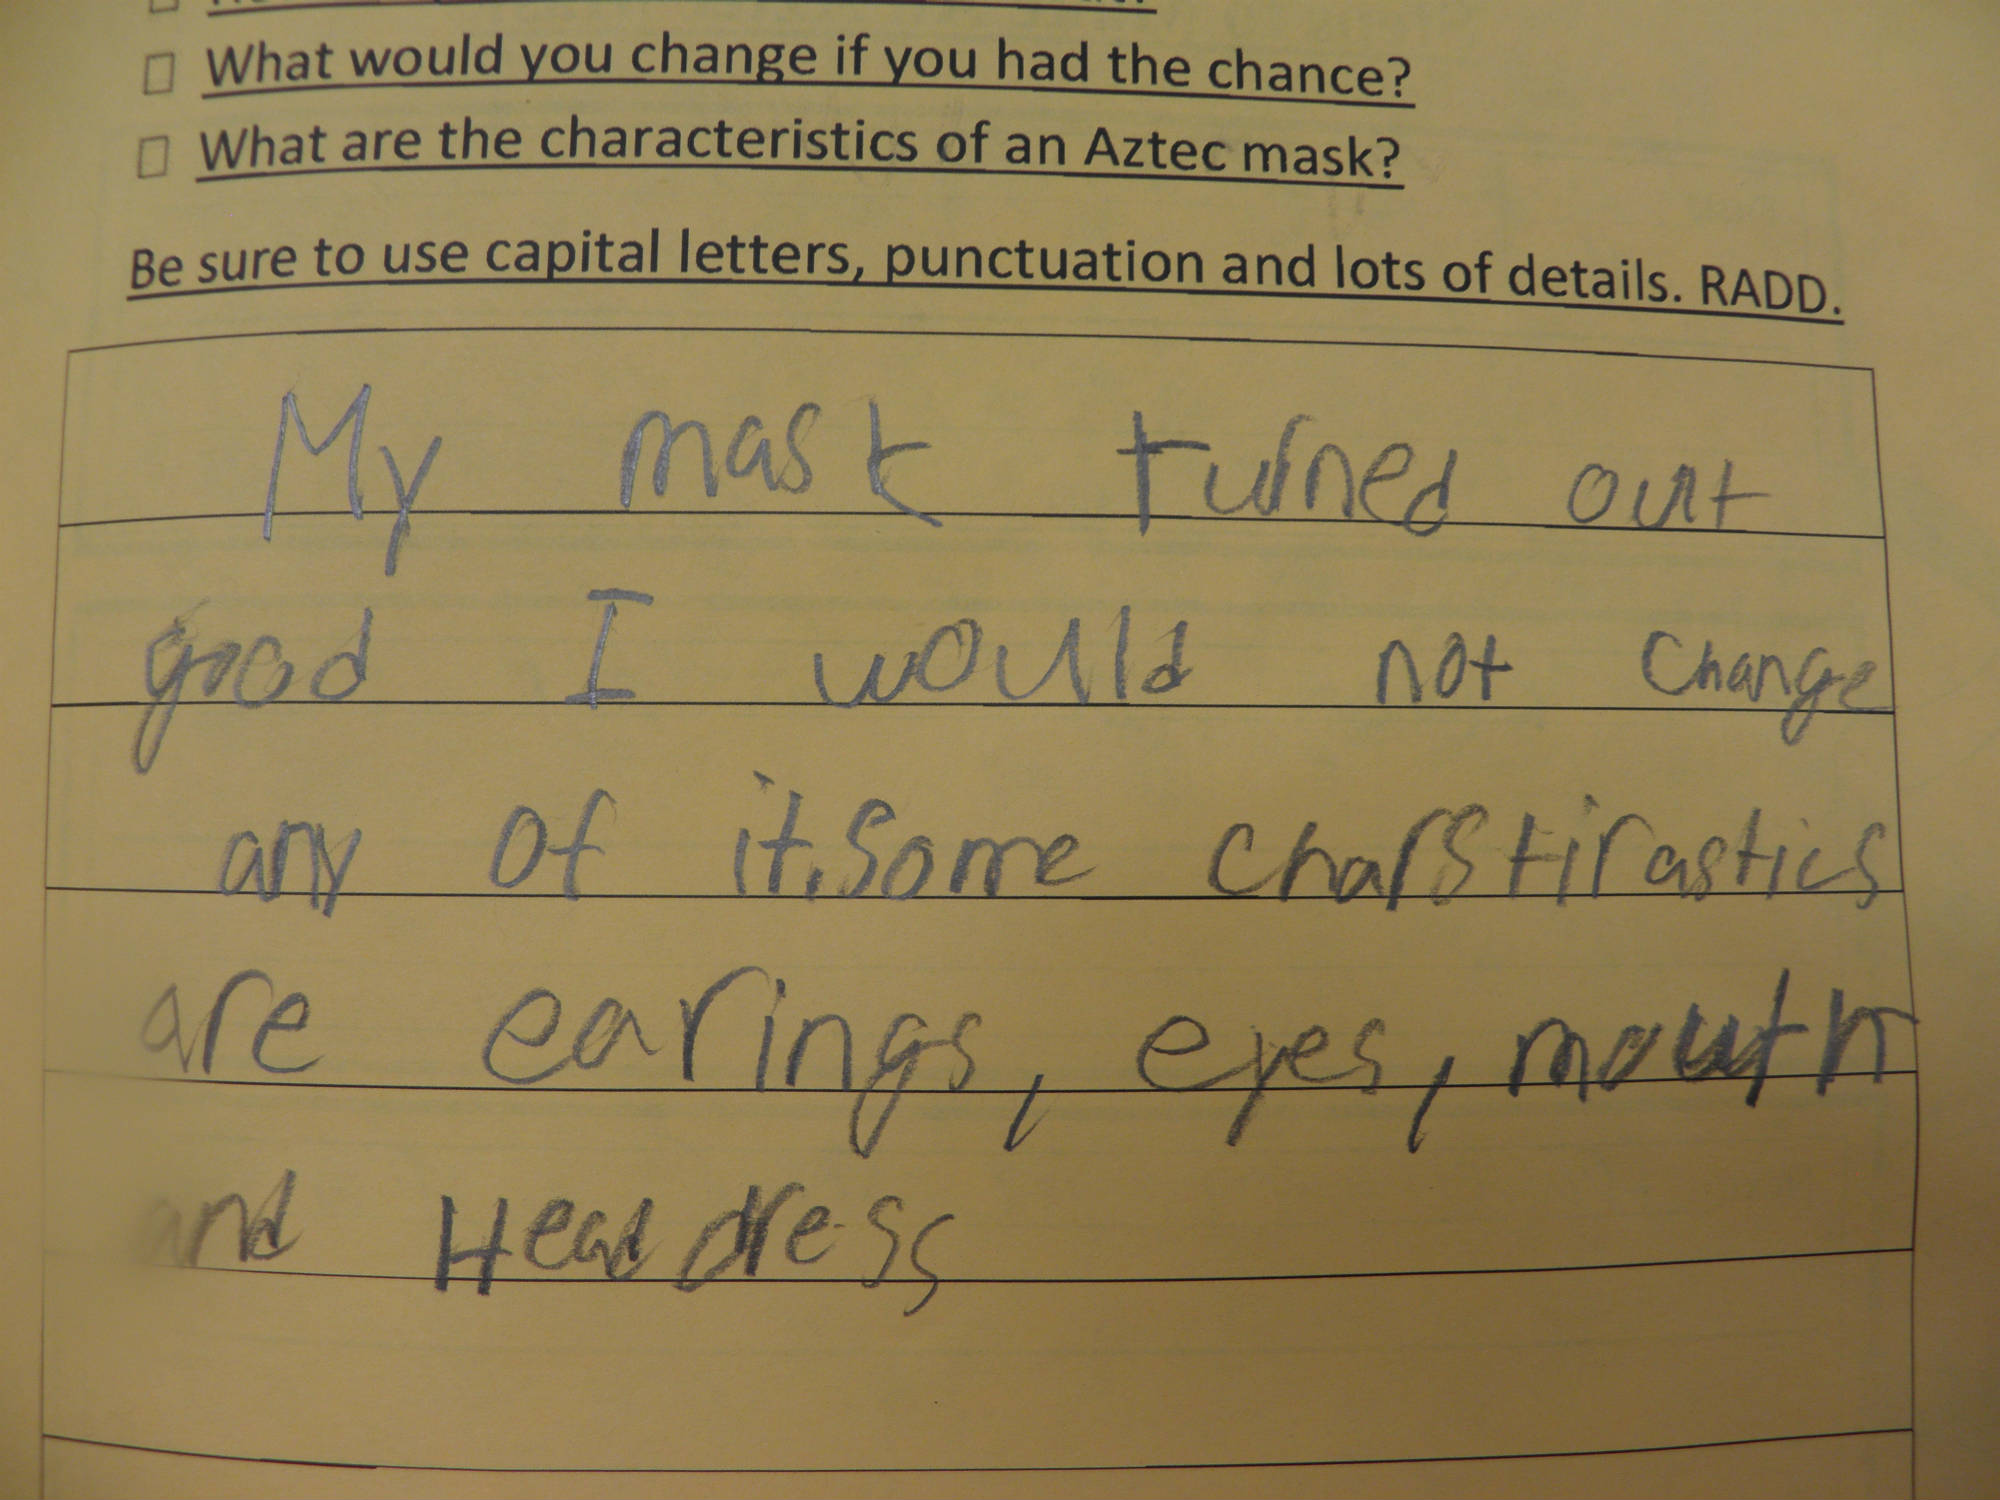 What would you change if you had the chance?
What are the characteristics of an Aztec mask?
Be sure to use capital letters, punctuation and lots of details. RADD.
My mask turned out
good I would not change
any of it. Some charstirastics
are earings, eyes, mouth
and Headdress